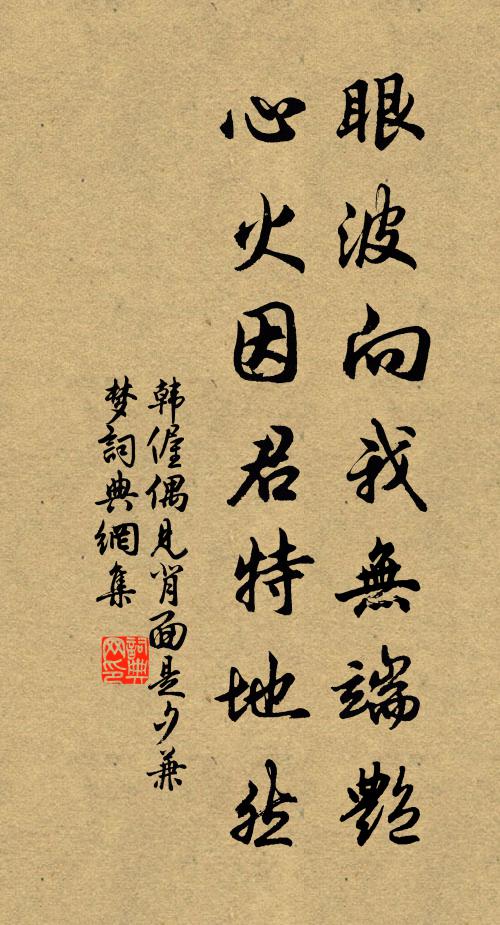 眼波向我無端艷
心火因君特地然
韩偓偶见背面是夕兼
梦詞典網集
詞典
网印